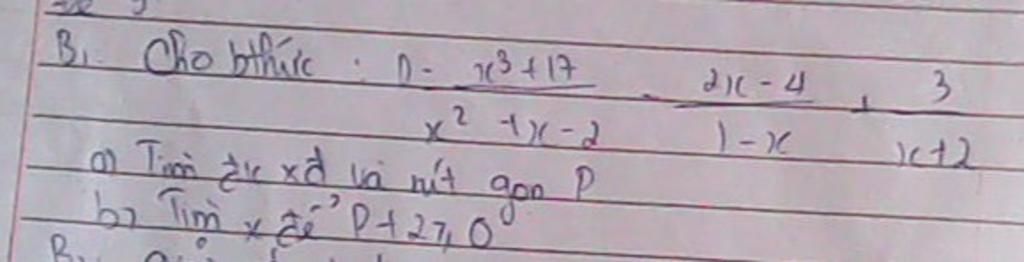 B1. Cho bthức : P = \frac{x^3+17}{x^2+x-2} - \frac{2x-4}{1-x} + \frac{3}{x+2}
a) Tìm đk xđ và rút gọn P
b) Tìm x để P+2 ≥ 0